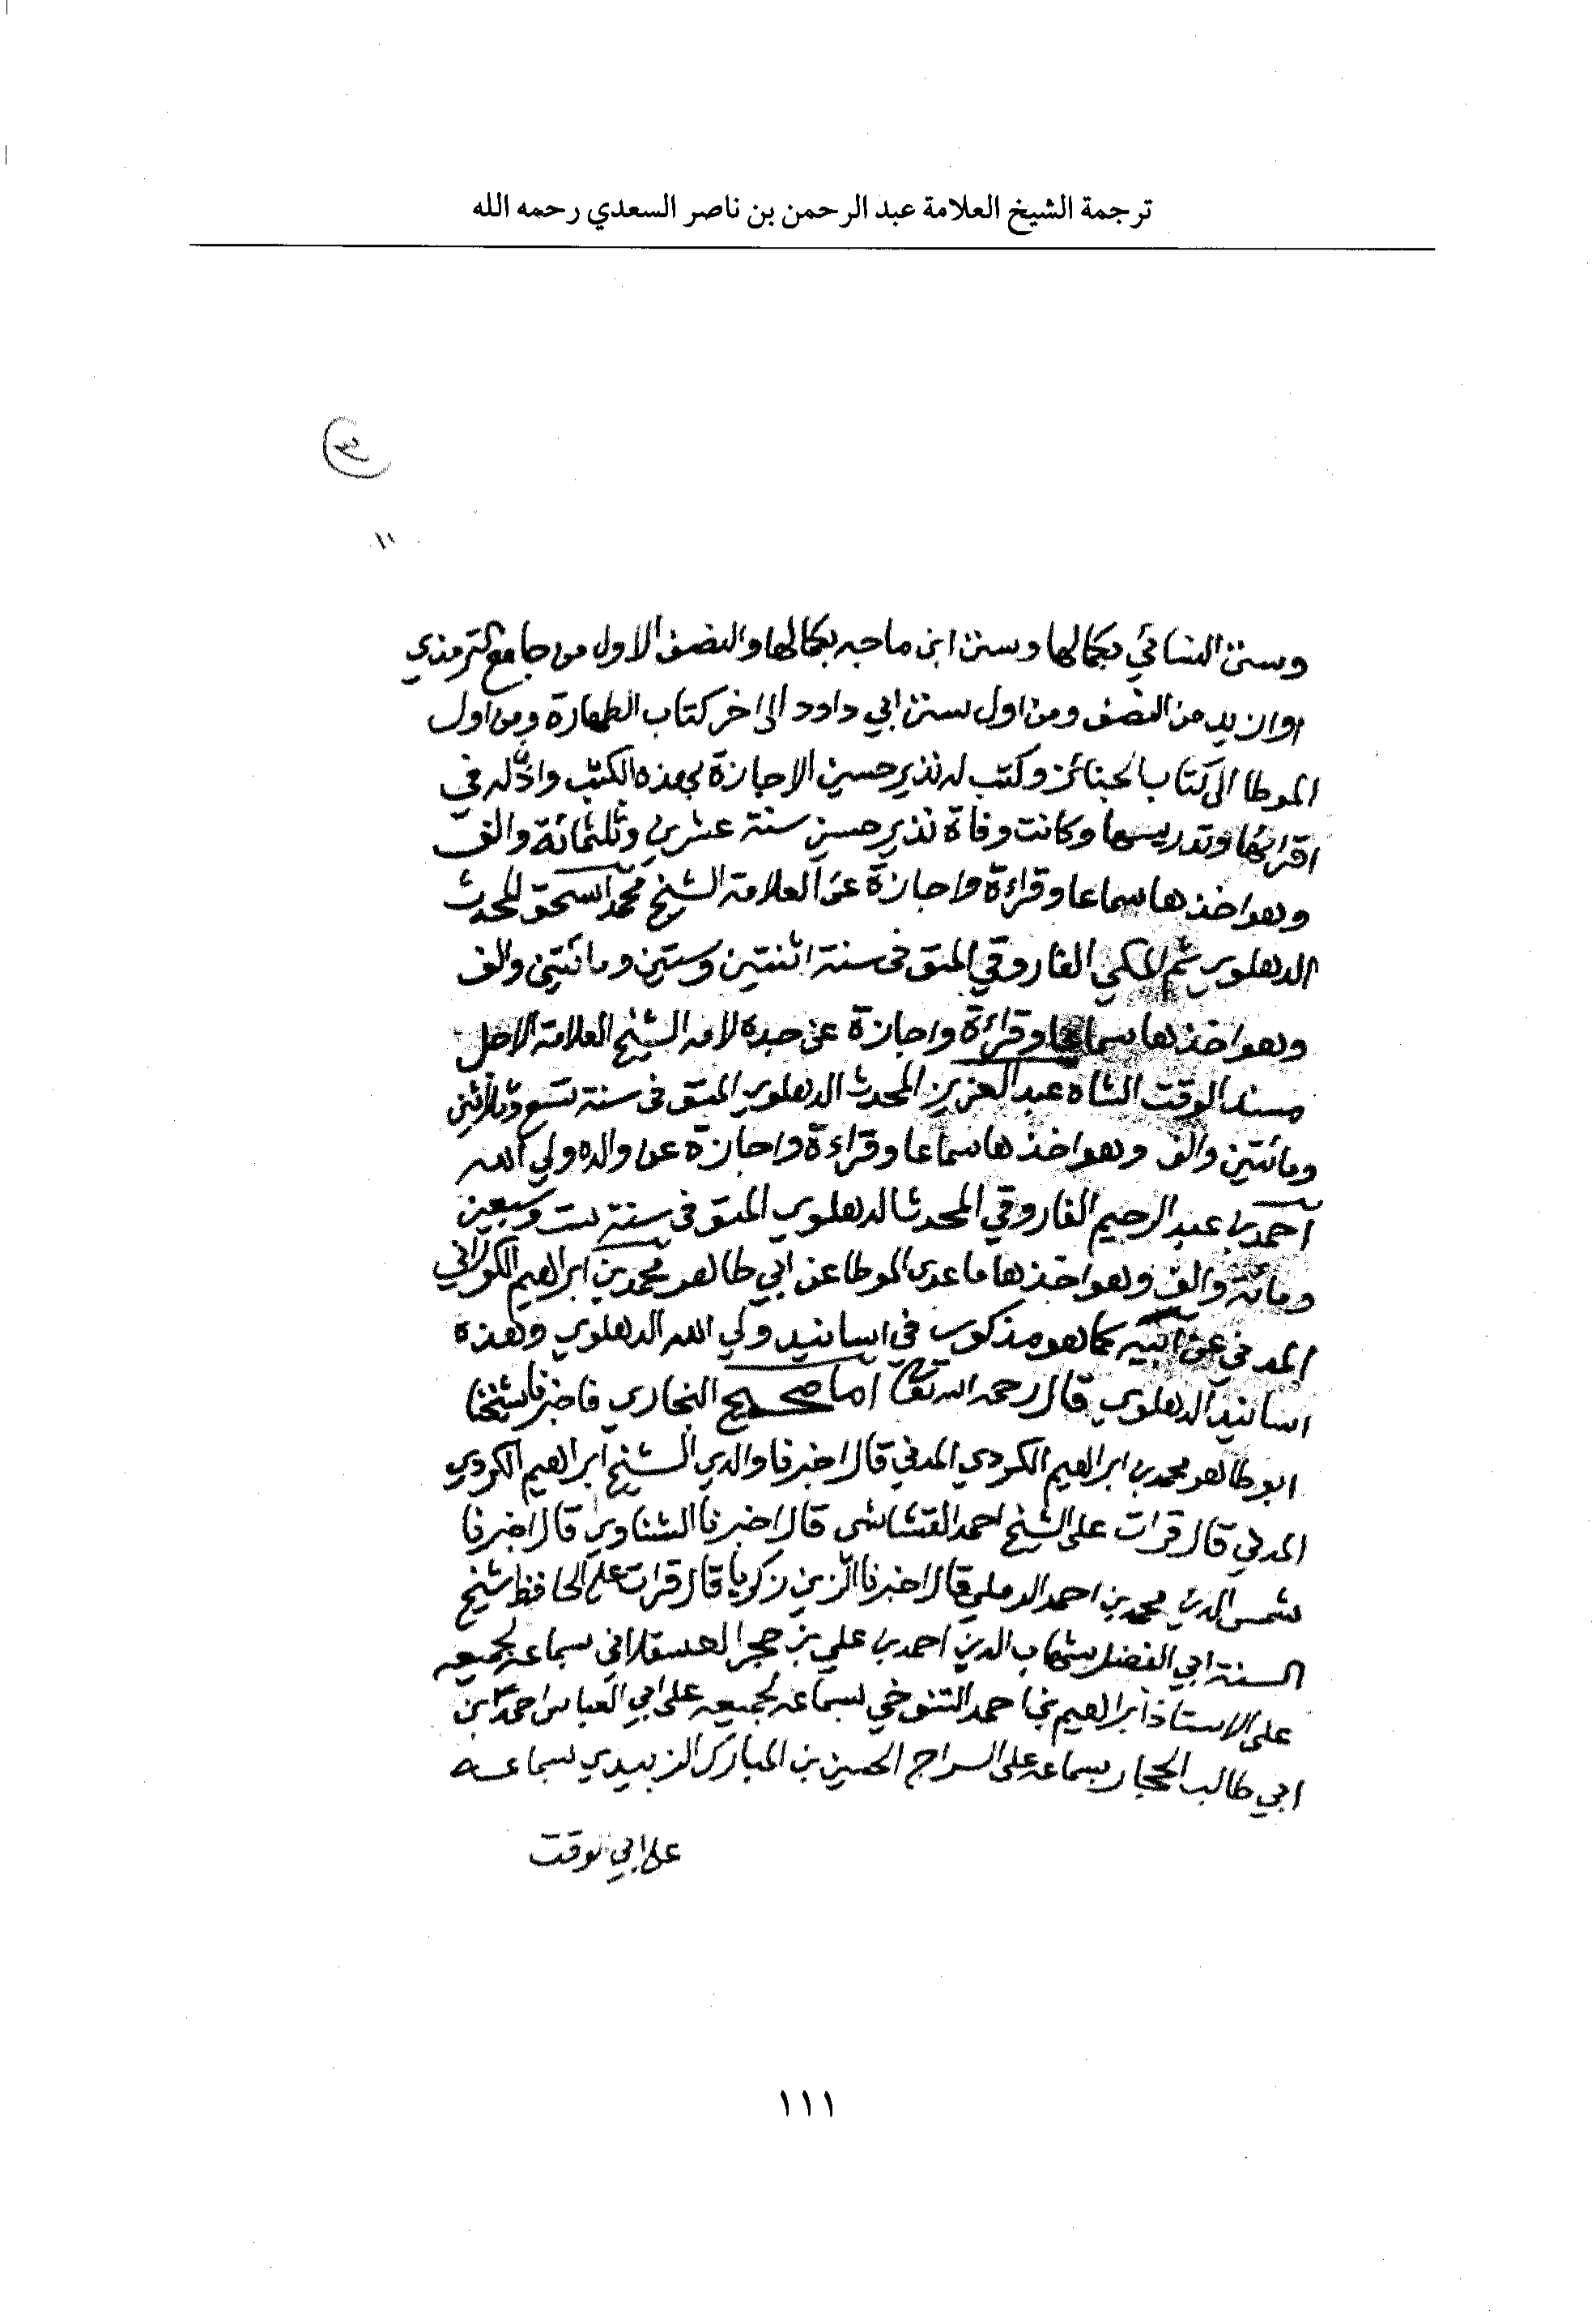 ترجمة الشيخ العلامة عبد الرحمن بن ناصر السعدي رحمه الله
١١
وسنن النسائي بكمالها وسنن ابن ماجه بكمالها والنصف الاول من جامع الترمذي
او ازيد من النصف ومن اول سنن ابي داود الى اخر كتاب الطهارة ومن اول
الموطا الى كتاب الجنائز وكتب له نذير حسين الاجازة بهذه الكتب واذن له في
اقرائها وتدريسها وكانت وفاة نذير حسين سنة عشرين وثلثمائة والف
وهو اخذها سماعا وقراءة واجازة عن العلامة الشيخ محمد اسحق المحدث
الدهلوي ثم المكي الفاروقي المتوفى سنة اثنتين وستين ومائتين والف
وهو اخذها سماعا وقراءة واجازة عن جده لامه الشيخ العلامة الاجل
مسند الوقت الشاه عبد العزيز المحدث الدهلوي المتوفى سنة تسع وثلاثين
ومائتين والف وهو اخذها سماعا وقراءة واجازة عن والده ولي الله
احمد بن عبد الرحيم الفاروقي المحدث الدهلوي المتوفى سنة ست وسبعين
ومائة والف وهو اخذها ما عدى الموطا عن ابي طاهر محمد بن ابراهيم الكوراني
المدني عن ابيه كما هو مذكور في اسانيد ولي الله الدهلوي وهذه
اسانيد الدهلوي قال رحمه الله تعالى اما صحيح البخاري فاخبرنا شيخنا
ابو طاهر محمد بن ابراهيم الكردي المدني قال اخبرنا والدي الشيخ ابراهيم الكردي
المدني قال قرات على الشيخ احمد القشاشى قال اخبرنا الشناوي قال اخبرنا
شمس الدين محمد بن احمد الرملي قال اخبرنا الزين زكريا قال قرات على الحافظ شيخ
السنة ابي الفضل شهاب الدين احمد بن علي بن حجر العسقلاني بسماعه لجميعه
على الاستاذ ابراهيم بن احمد التنوخي بسماعه لجميعه على ابي العباس احمد بن
ابي طالب الحجار بسماعه على السراج الحسين بن المبارك الزبيدي بسماعه
على ابي الوقت
١١١